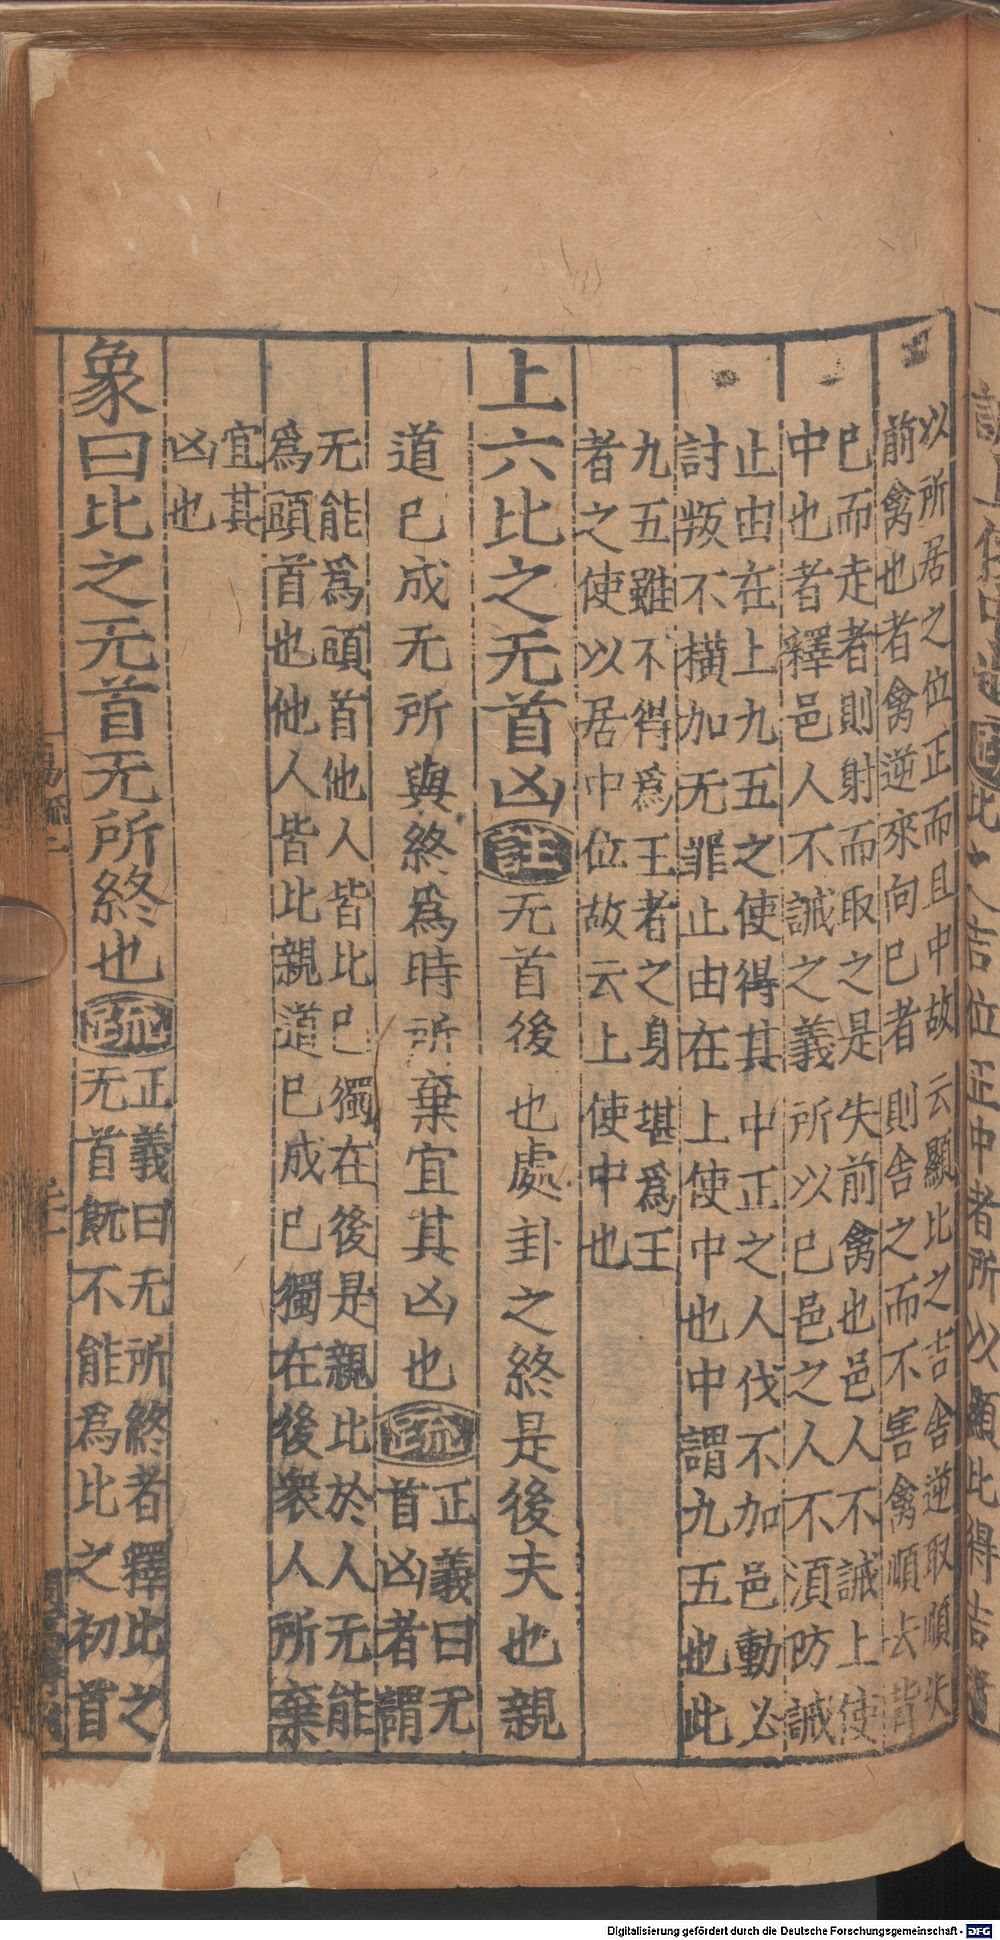 以所居之位正而且中故云顯比之吉舍逆取順失
前禽也者禽逆來向已者則舍之而不害禽順去背
已而走者則射而取之是失前禽也邑人不誡上使
中也者釋邑人不誡之義所以已邑之人不須防誡
止由在上九五之使得其中正之人伐不加邑動必
討叛不橫加无罪止由在上使中也中謂九五也此
九五雖不得爲王者之身堪爲王
者之使以居中位故云上使中也
上六比之无首凶註无首後也處卦之終是後夫也親
道已成无所與終爲時所棄宜其凶也疏
正義曰无
首凶者謂
无能爲頭首他人皆比已獨在後是親比於人无能
爲頭首也他人皆比親道已成已獨在後衆人所棄
宜其
凶也
象曰比之无首无所終也疏
正義曰无所終者釋比之
无首旣不能爲比之初首
易疏二
Digitalisierung gefördert durch die Deutsche Forschungsgemeinschaft - DFG